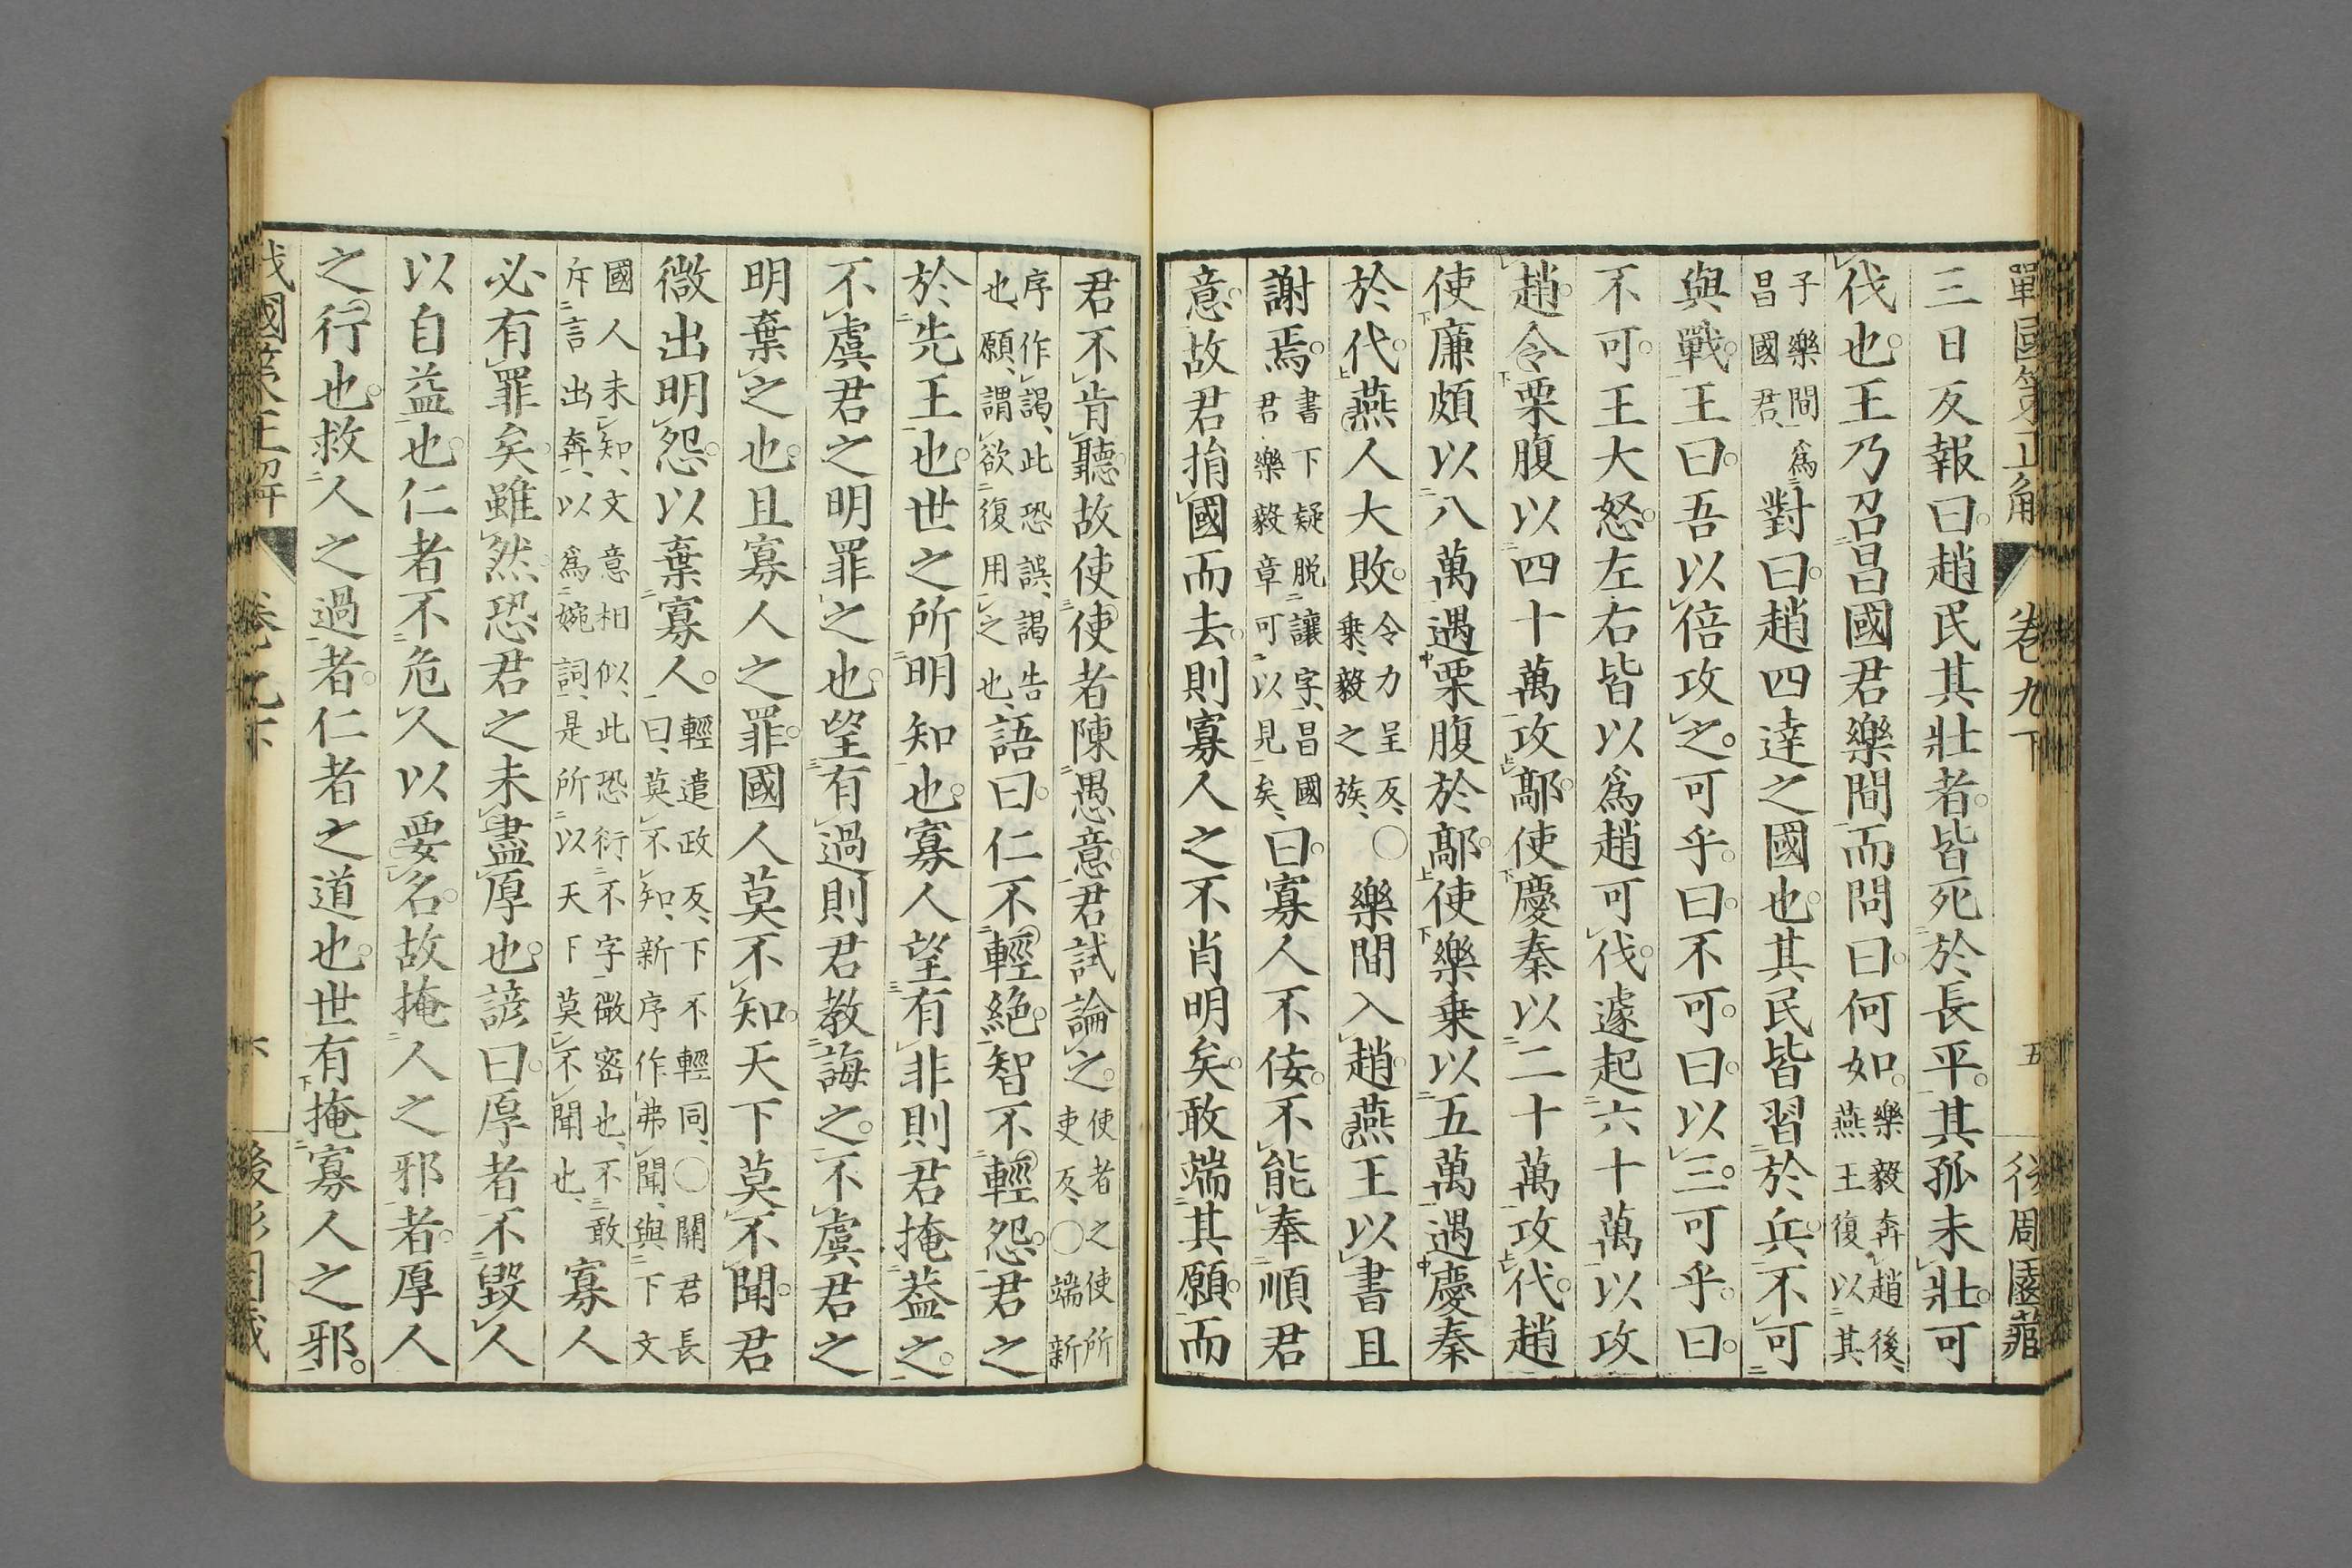 戰國策正解 卷九下 五 後周園藏
三日反報曰趙民其壯者皆死於長平其孤未壯可
伐也王乃召昌國君樂間而問曰何如樂毅奔趙後、燕王復以其
子樂間爲昌國君、對曰趙四達之國也其民皆習於兵不可
與戰王曰吾以倍攻之可乎曰不可曰以三可乎曰
不可王大怒左右皆以爲趙可伐遽起六十萬以攻
趙令栗腹以四十萬攻鄗使慶秦以二十萬攻代趙
使廉頗以八萬遇栗腹於鄗使樂乘以五萬遇慶秦
於代燕人大敗令力呈反、乘、毅之族、○樂間入趙燕王以書且
謝焉書下疑脫讓字、昌國君樂毅章可以見矣、曰寡人不佞不能奉順君
意故君捐國而去則寡人之不肖明矣敢端其願而
君不肯聽故使使者陳愚意君試論之使者之使所吏反、○端新
序作謁、此恐誤、謁告也、願、謂欲復用之也、語曰仁不輕絕智不輕怨君之
於先王也世之所明知也寡人望有非則君掩蓋之
不虞君之明罪之也望有過則君教誨之不虞君之
明棄之也且寡人之罪國人莫不知天下莫不聞君
微出明怨以棄寡人輕遣政反、下不輕同、○關君長曰、莫不知、新序作弗聞、與下文
國人未知、文意相似、此恐衍不字、微密也、不敢斥言出奔、以爲婉詞、是所以天下莫不聞也、寡人
必有罪矣雖然恐君之未盡厚也諺曰厚者不毀人
以自益也仁者不危人以要名故掩人之邪者厚人
之行也救人之過者仁者之道也世有掩寡人之邪
戰國策正解 卷九下 六 後周園藏